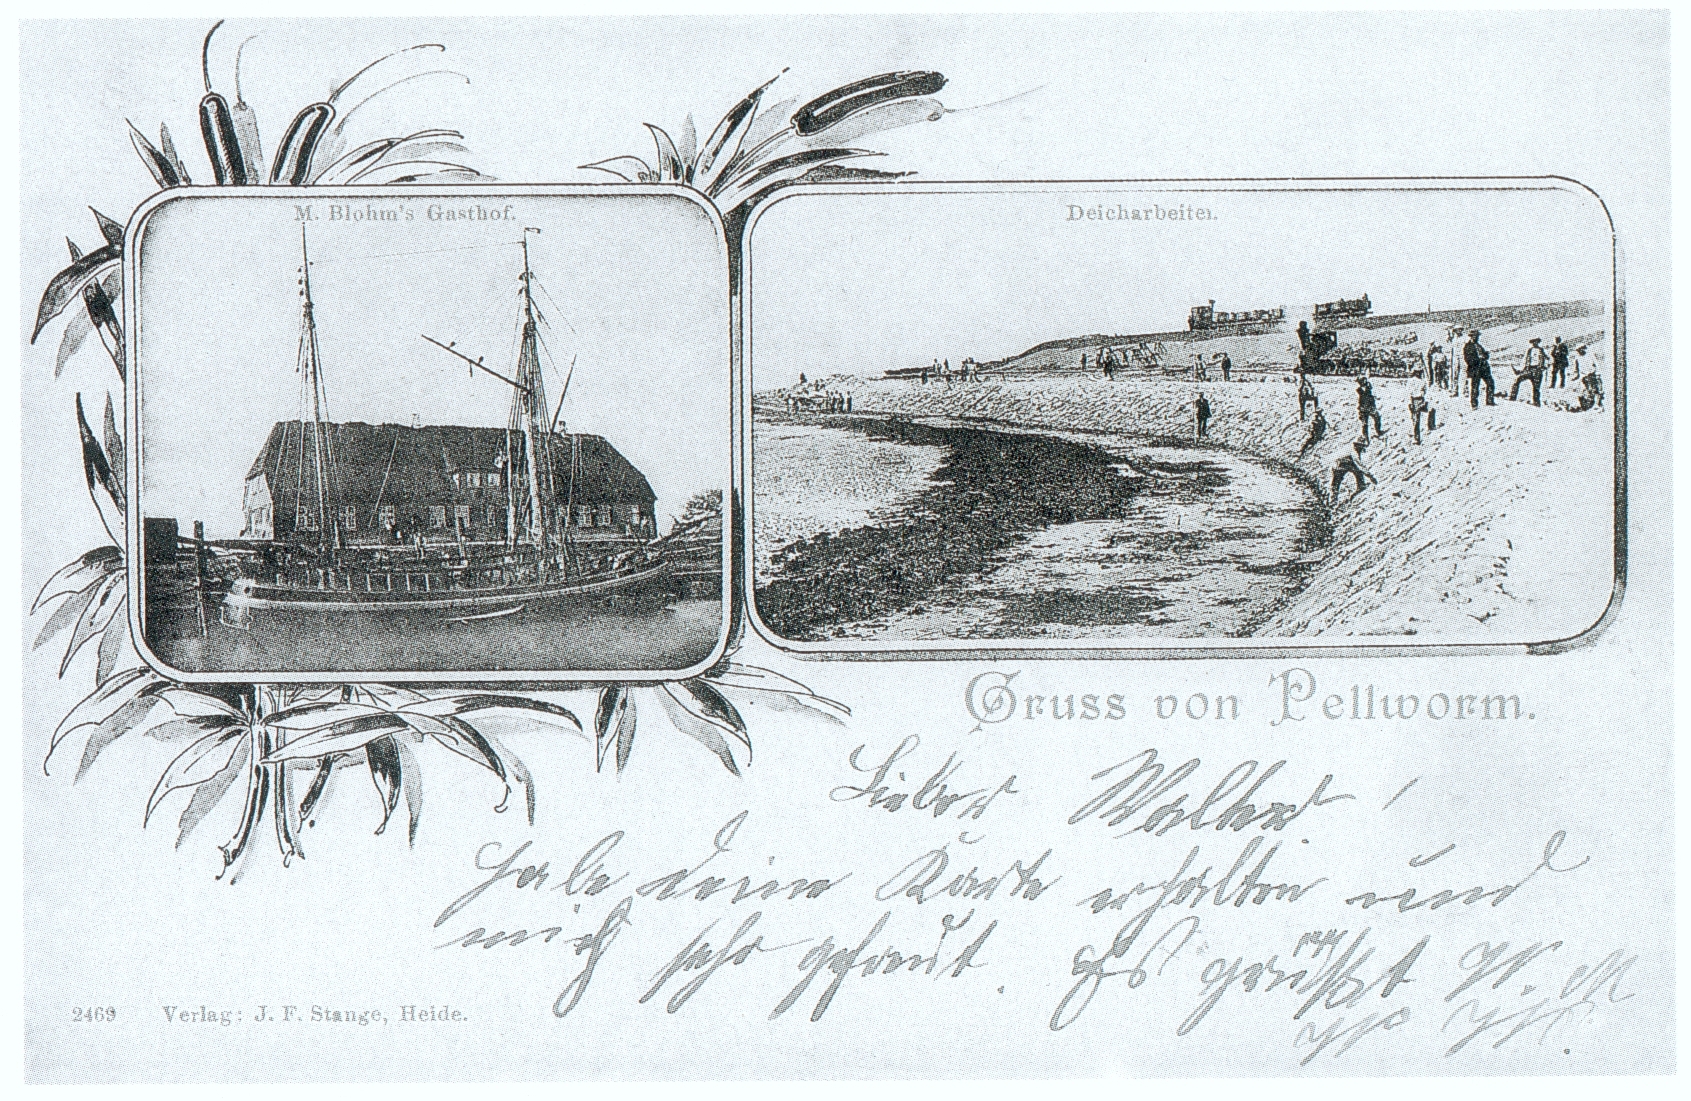 M. Blohm's Gasthof.
Deicharbeiten.
Gruss von Pellworm.
Lieber Walter!
Habe deine Karte erhalten und
mich sehr gefreut. Es grüßt
2469 Verlag: J. F. Stange, Heide.